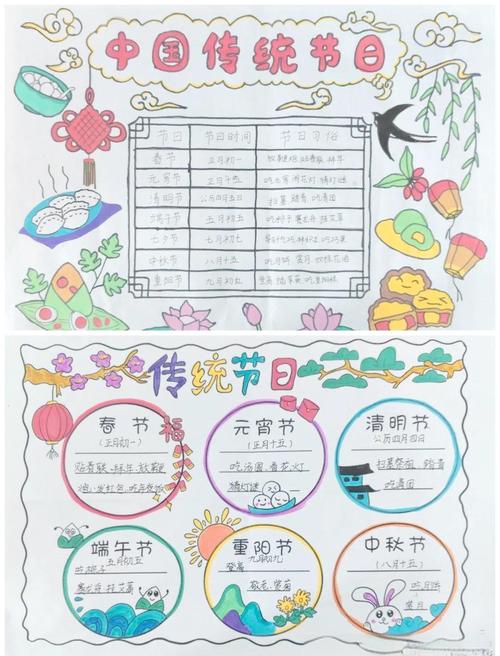 中国传统节日
节日 节日时间 节日习俗
春节 正月初一 放鞭炮 贴春联 拜年
元宵节 正月十五 吃元宵 闹花灯 猜灯谜
清明节 公历四月五日 扫墓 踏青 吃青团
端午节 五月初五 吃粽子 赛龙舟 挂艾草
七夕节 七月初七
中秋节 八月十五 吃月饼 赏月 饮桂花酒
重阳节 九月初九 登高 插茱萸 吃重阳糕
传统节日
春节
(正月初一)
福
贴春联、拜年、放鞭
炮、发红包、吃年夜饭
元宵节
(正月十五)
吃汤圆、看花灯
猜灯谜
清明节
公历四月四日
扫墓祭祖、踏青
吃青团
端午节
五月初五
吃粽子
赛龙舟、挂艾草
重阳节
九月初九
登高
敬老、赏菊
中秋节
(八月十五)
吃月饼
赏月